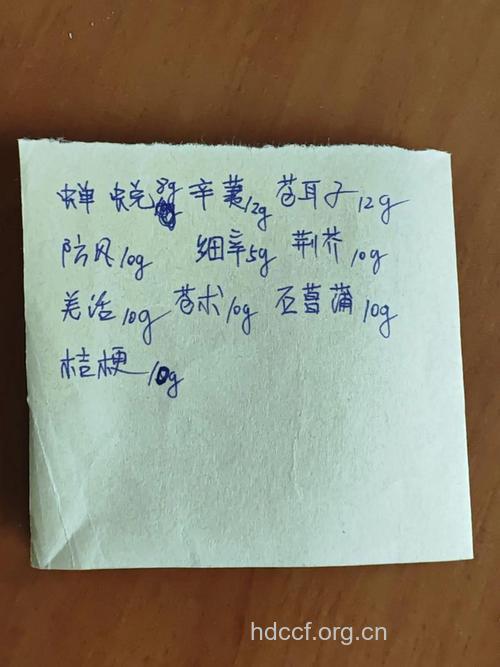 蝉蜕8g 辛荑12g 苍耳子12g
防风10g 细辛5g 荆芥10g
羌活10g 苍术10g 石菖蒲10g
桔梗10g
hdccf.org.cn